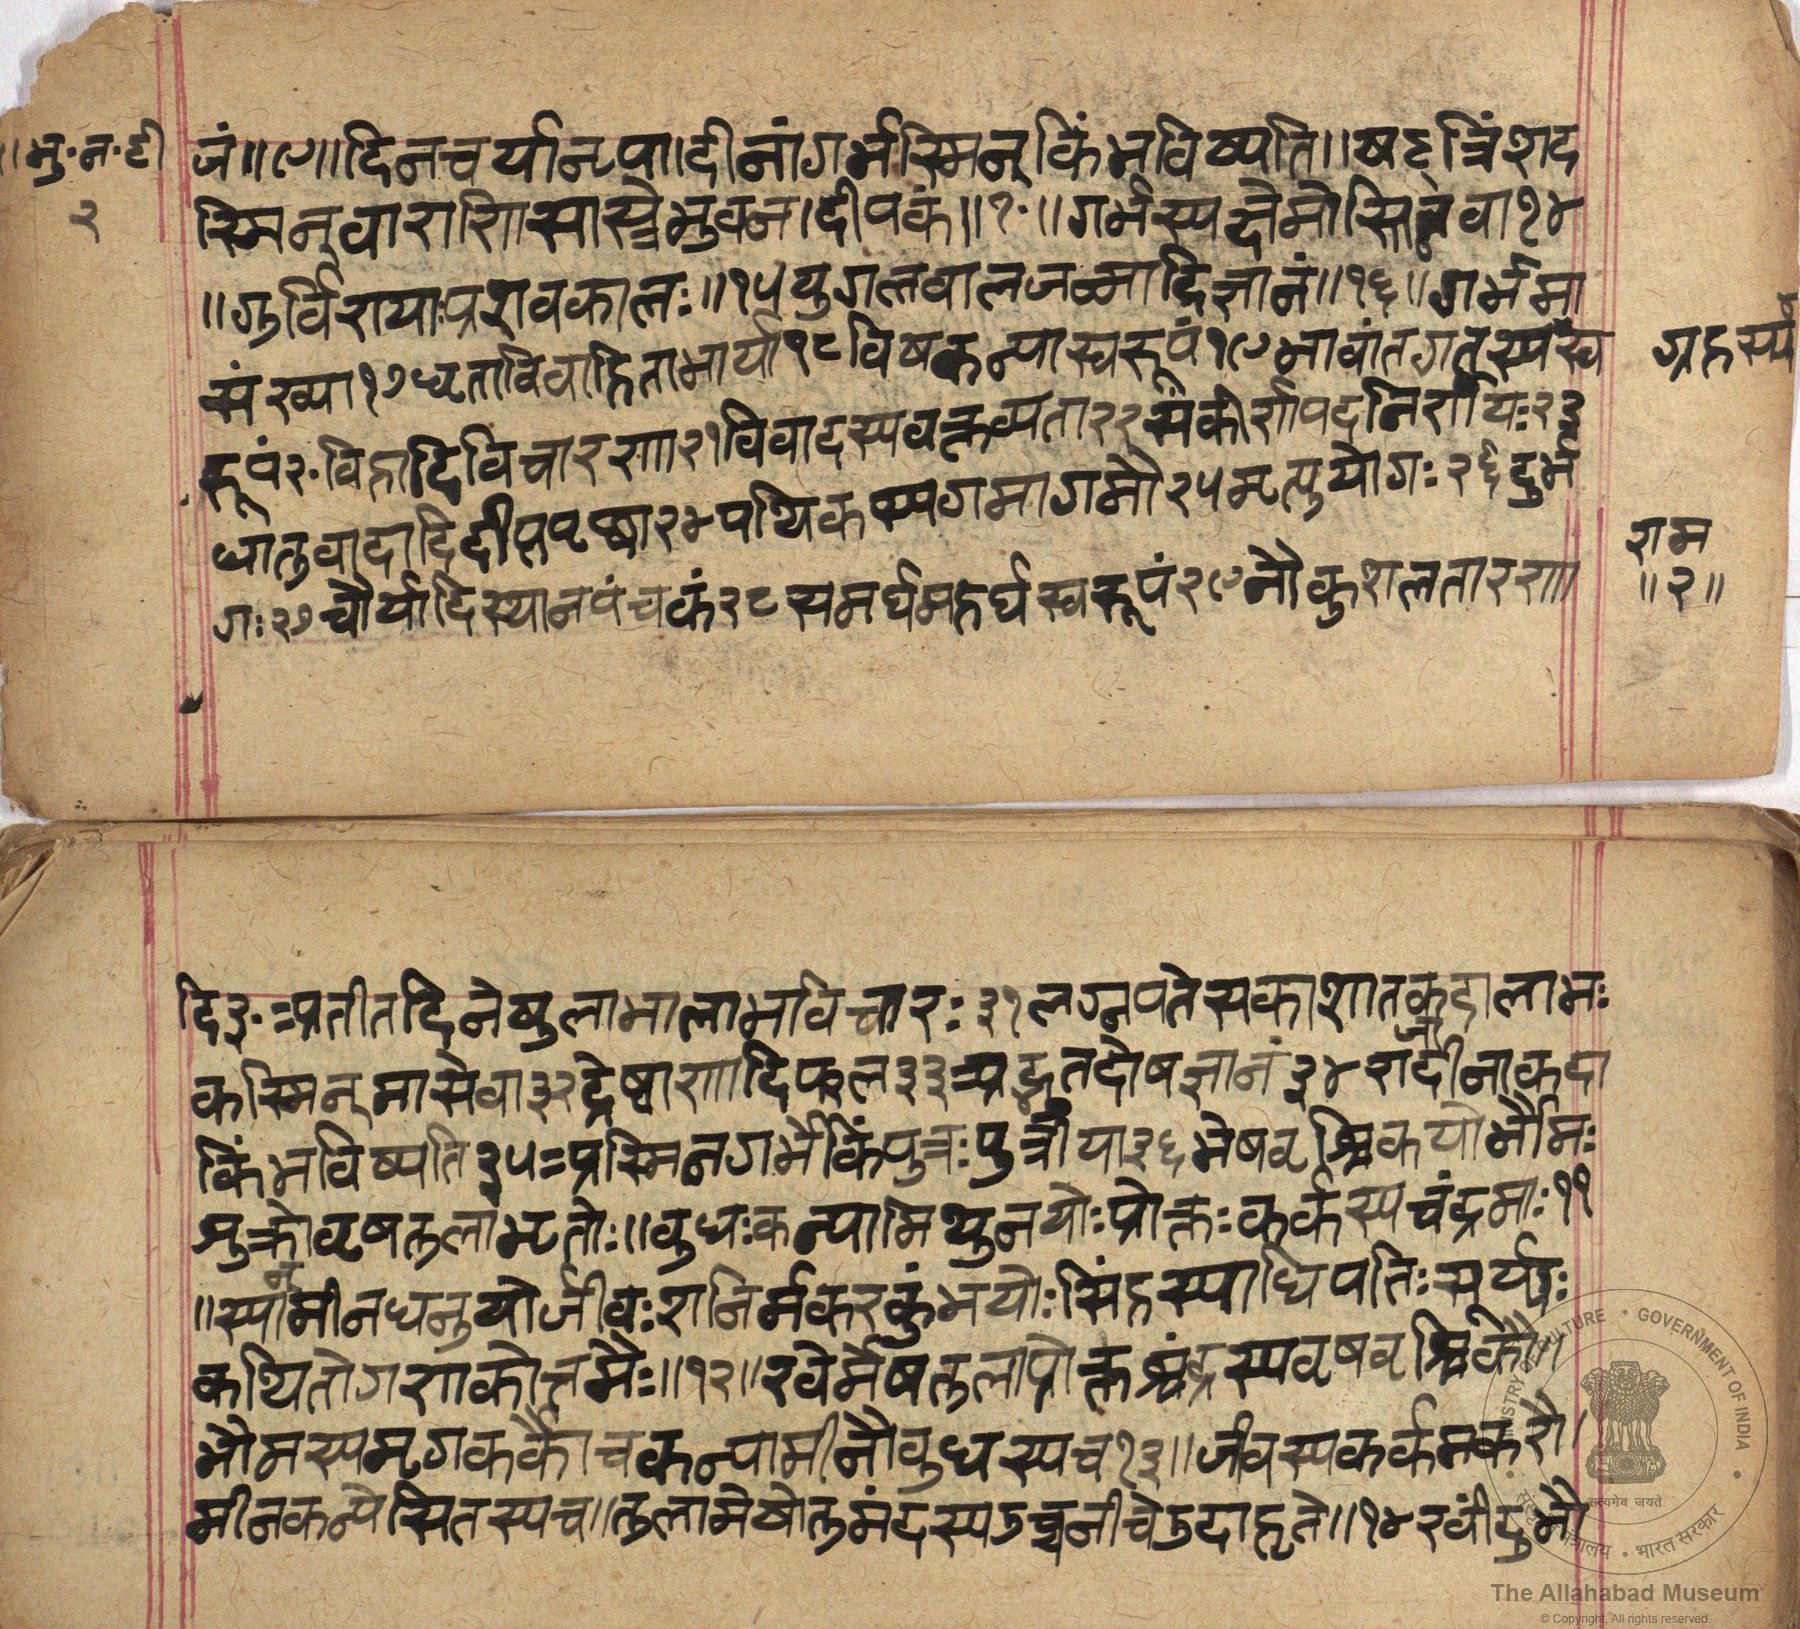 ॥भु·न·दी
२
जं॥९॥दिनचर्यानृपा॥दीनांगर्भस्मिन्किंभविष्यति॥षट्त्रिंशद
स्मिन्वाराणिसास्त्रेभुवन।दीपकं॥१·॥गर्भस्यक्षेमोस्तिनवा१४
॥गुर्विणयाःप्रशवकालः॥१५युगलवालजन्मादिज्ञानं॥१६॥गर्भमा
संख्या१७धृताविवाहिताभार्या१८विषकन्यास्वरूपं१९भावांतगतस्यस्व
ग्रहस्य
रूपं२·विहादिविचारणा२१विवादस्यवक्तव्यता२२संकीर्णपदनिर्णयः२३
धातुवादादिदीप्तपृष्ठा२४पथिकस्यगमागमौ२५मृत्युयोगः२६दुर्भ
गः२७चौर्यादिस्थानपंचकं२८समर्घमहर्घस्वरूपं२९नौकुशलतारणा
राम
॥२॥
दि३·अतीतदिनेषुलाभालाभविचारः३१लग्नपतेसकाशातकदालाभः
कस्मिन्मासेवा३२द्रेष्काणादिफल३३अद्भुतदोषज्ञानं३४राजादीनांकदा
किंभविष्यति३५अस्मिनगर्भेकिंपुत्रःपुत्रीया३६मेषवृश्चिकयोर्भौमः
शुक्रोवृषतुलाभृतोः॥वुधःकन्यामिथुनयोःप्रोक्तःकर्कस्यचंद्रमाः११
॥स्यान्मीनधनुयोर्जीवःशनिर्मकरकुंभयोःसिंहस्याधिपतिःसूर्यः
कथितोगणकोत्तमैः॥१२॥रवेर्मेषतुलाप्रोक्तश्चंद्रस्यवृषवृश्चिकौ॥
भौमस्यमृगकर्कौचकन्यामीनौवुधस्यच१३॥जीवस्यकर्कमकरौ।
मीनकन्येसितस्यच॥तुलामेषोतुमंदस्यउच्चनीचेउदाहृते॥१४रवींदुभौ
MINISTRY OF CULTURE • GOVERNMENT OF INDIA
सत्यमेव जयते
संस्कृति मंत्रालय • भारत सरकार
The Allahabad Museum
© Copyright, All rights reserved.